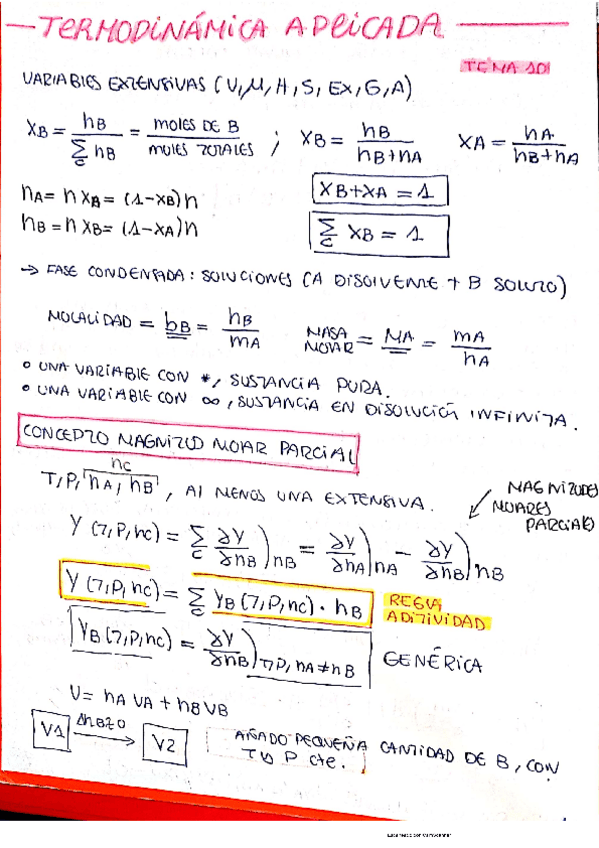 TERMODINÁMICA APLICADA
TEMA 10
VARIABLES EXTENSIVAS (V, M, H, S, Ex, G, A)
XB = nB / Σc nB = MOLES DE B / MOLES TOTALES ; XB = nB / nB+nA XA = nA / nB+nA
nA = n XA = (1-XB) n
nB = n XB = (1-XA) n
XB + XA = 1
Σc XB = 1
→ FASE CONDENSADA: SOLUCIONES (A DISOLVENTE + B SOLUTO)
MOLALIDAD = bB = nB / mA MASA MOLAR = MA = mA / nA
o UNA VARIABLE CON *, SUSTANCIA PURA.
• UNA VARIABLE CON ∞, SUSTANCIA EN DISOLUCIÓN INFINITA.
CONCEPTO MAGNITUD MOLAR PARCIAL
nc
T, P, nA, nB, AL MENOS UNA EXTENSIVA.
MAGNITUDES MOLARES PARCIALES
Y (T, P, nc) = Σc ∂Y/∂nB) nB = ∂Y/∂nA) nA - ∂Y/∂nB) nB
Y (T, P, nc) = Σc YB (T, P, nc) · nB REGLA ADITIVIDAD
YB (T, P, nc) = ∂Y/∂nB) T, P, nA ≠ nB GENÉRICA
V = nA VA + nB VB
V1 ΔnB≠0 → V2 AÑADO PEQUEÑA CANTIDAD DE B, CON
T y P cte.